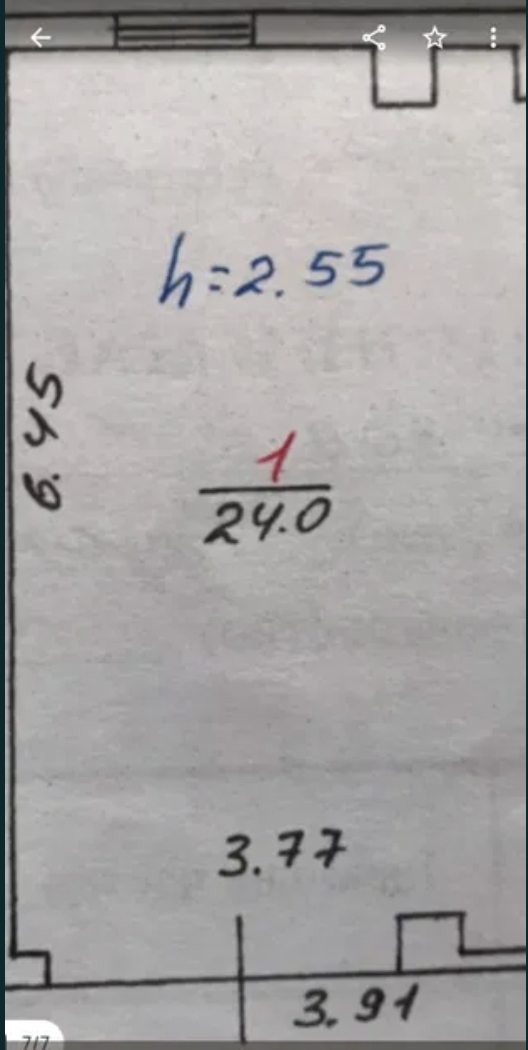 h=2.55
6.45
1
24.0
3.77
3.91
7/7